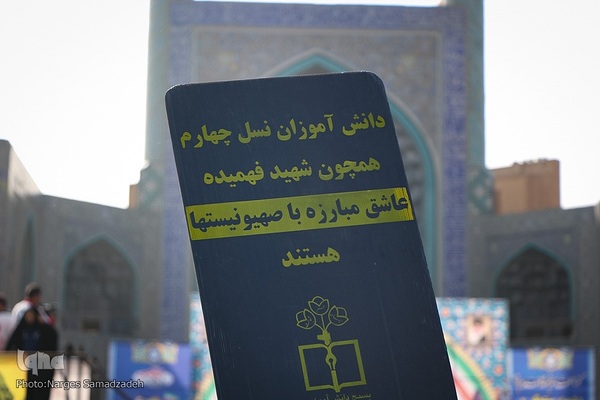 دانش آموزان نسل چهارم
همچون شهید فهمیده
عاشق مبارزه با صهیونیستها
هستند
iqna
Photo:Narges Samadzadeh